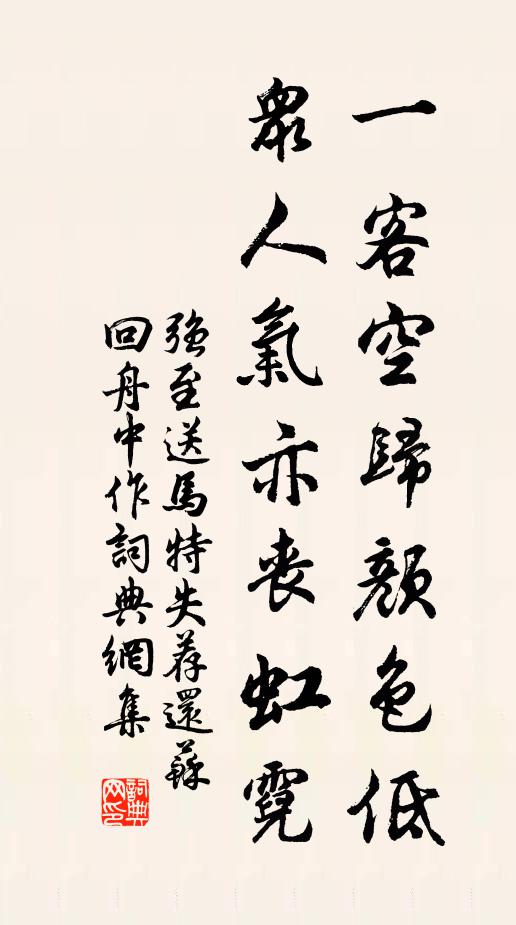 一客空歸顏色低
衆人氣亦喪虹霓
強至送馬特失荐還蘇
回舟中作詞典網集
詞典
网印